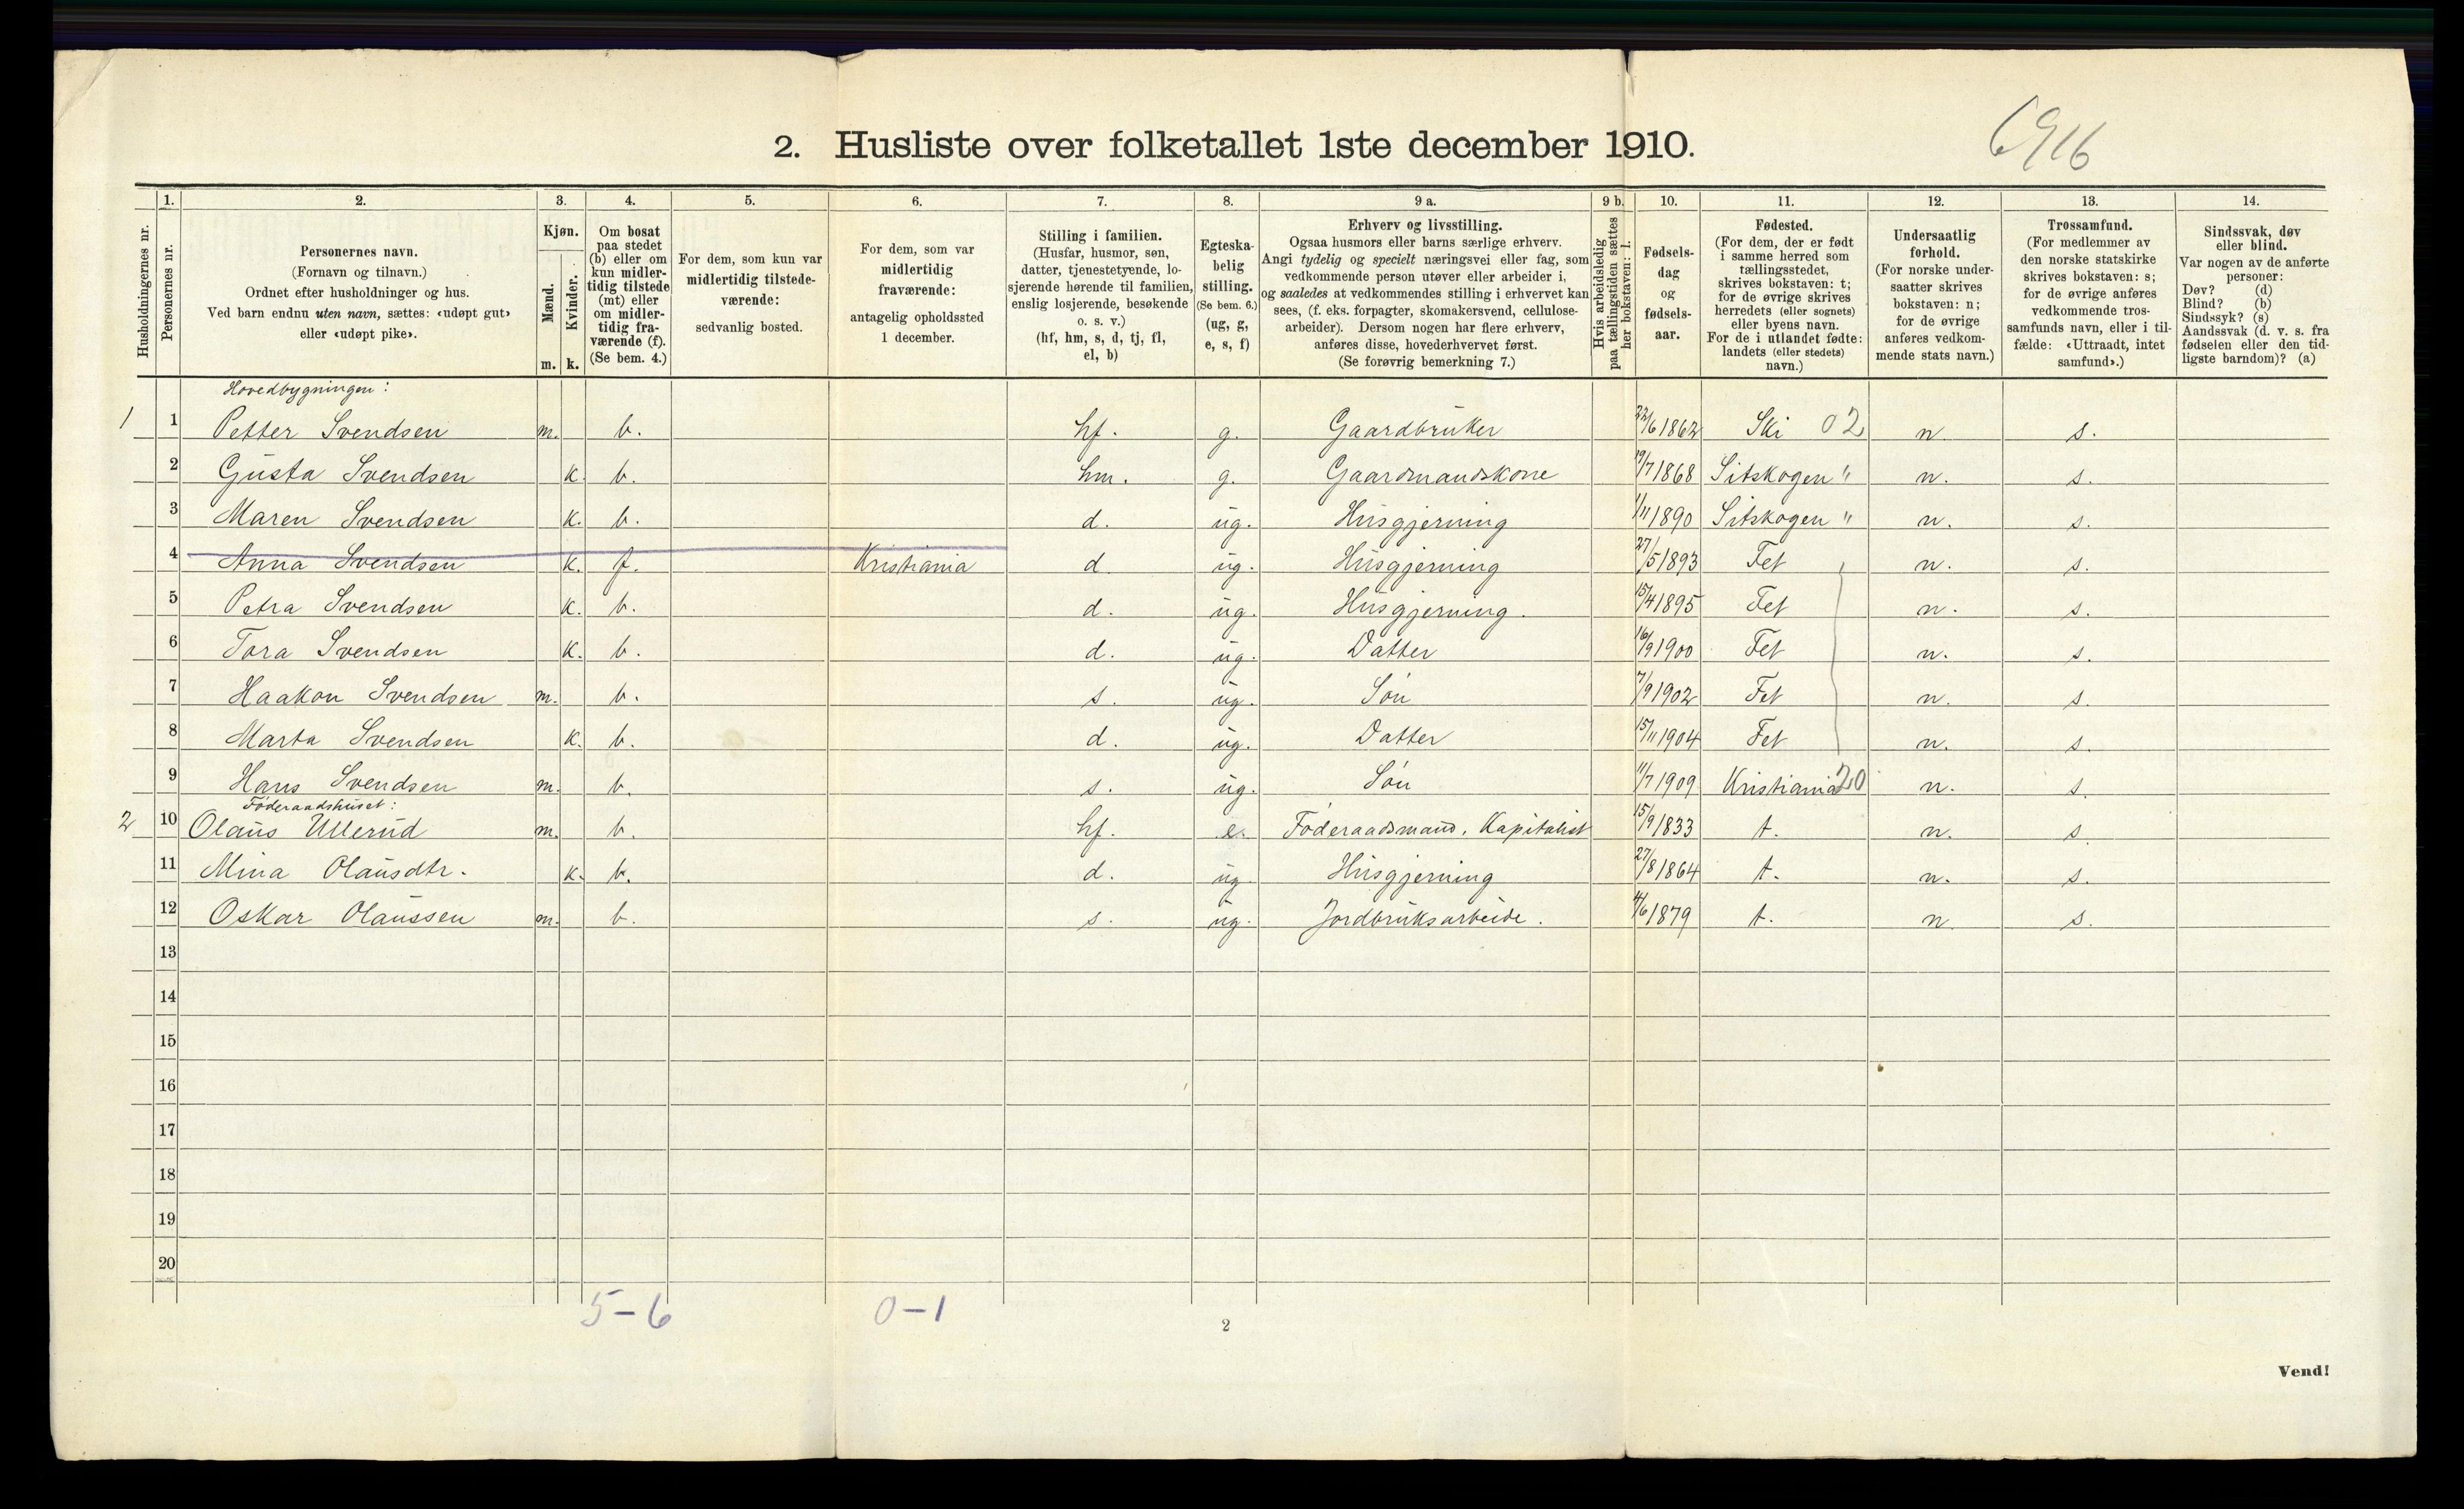 6916
2. Husliste over folketallet 1ste december 1910.
Husholdningernes nr.
1.
Personernes nr.
2.
Personernes navn.
(Fornavn og tilnavn.)
Ordnet efter husholdninger og hus.
Ved barn endnu uten navn, sættes: «udøpt gut»
eller «udøpt pike».
3.
Kjøn.
Mænd.
Kvinder.
m. k.
4.
Om bosat
paa stedet
(b) eller om
kun midler-
tidig tilstede
(mt) eller
om midler-
tidig fra-
værende (f).
(Se bem. 4.)
5.
For dem, som kun var
midlertidig tilstede-
værende:
sedvanlig bosted.
6.
For dem, som var
midlertidig
fraværende:
antagelig opholdssted
1 december.
7.
Stilling i familien.
(Husfar, husmor, søn,
datter, tjenestetyende, lo-
sjerende hørende til familien,
enslig losjerende, besøkende
o. s. v.)
(hf, hm, s, d, tj, fl,
el, b)
8.
Egteska-
belig
stilling.
(Se bem. 6.)
(ug, g,
e, s, f)
9 a.
Erhverv og livsstilling.
Ogsaa husmors eller barns særlige erhverv.
Angi tydelig og specielt næringsvei eller fag, som
vedkommende person utøver eller arbeider i,
og saaledes at vedkommendes stilling i erhvervet kan
sees, (f. eks. forpagter, skomakersvend, cellulose-
arbeider). Dersom nogen har flere erhverv,
anføres disse, hovederhvervet først.
(Se forøvrig bemerkning 7.)
9 b.
Hvis arbeidsledig
paa tællingstiden sættes
her bokstaven: l.
10.
Fødsels-
dag
og
fødsels-
aar.
11.
Fødested.
(For dem, der er født
i samme herred som
tællingsstedet,
skrives bokstaven: t;
for de øvrige skrives
herredets (eller sognets)
eller byens navn.
For de i utlandet fødte:
landets (eller stedets)
navn.)
12.
Undersaatlig
forhold.
(For norske under-
saatter skrives
bokstaven: n;
for de øvrige
anføres vedkom-
mende stats navn.)
13.
Trossamfund.
(For medlemmer av
den norske statskirke
skrives bokstaven: s;
for de øvrige anføres
vedkommende tros-
samfunds navn, eller i til-
fælde: «Uttraadt, intet
samfund».)
14.
Sindssvak, døv
eller blind.
Var nogen av de anførte
personer:
Døv? (d)
Blind? (b)
Sindssyk? (s)
Aandssvak (d. v. s. fra
fødselen eller den tid-
ligste barndom)? (a)
Hovedbygningen:
1 1 Petter Svendsen m. b. hf. g. Gaardbruker 22/6 1862 Ski 02 n. s.
2 Gusta Svendsen k. b. hm. g. Gaardmandskone 19/7 1868 Sitskogen " n. s.
3 Maren Svendsen k. b. d. ug. Husgjerning 1/11 1890 Sitskogen " n. s.
4 Anna Svendsen k. f. Kristiania d ug. Husgjerning 27/5 1893 Fet n. s.
5 Petra Svendsen k. b. d. ug. Husgjerning. 15/4 1895 Fet n. s.
6 Tora Svendsen k. b. d. ug. Datter 16/9 1900 Fet n. s.
7 Haakon Svendsen m. b. s. ug. Søn 7/9 1902 Fet n. s.
8 Marta Svendsen k. b. d. ug. Datter 15/11 1904 Fet n. s.
9 Hans Svendsen m. b. s. ug. Søn 11/7 1909 Kristiania 20 n. s.
Føderaadshuset:
2 10 Olaus Ullerud m. b. hf. e. Føderaadsmand. Kapitalist 15/9 1833 t. n. s.
11 Mina Olausdtr. k. b. d. ug Husgjerning 27/8 1864 t. n. s.
12 Oskar Olaussen m. b. s. ug. Jordbruksarbeide. 4/6 1879 t. n. s.
13
14
15
16
17
18
19
20
5-6 0-1
2
Vend!